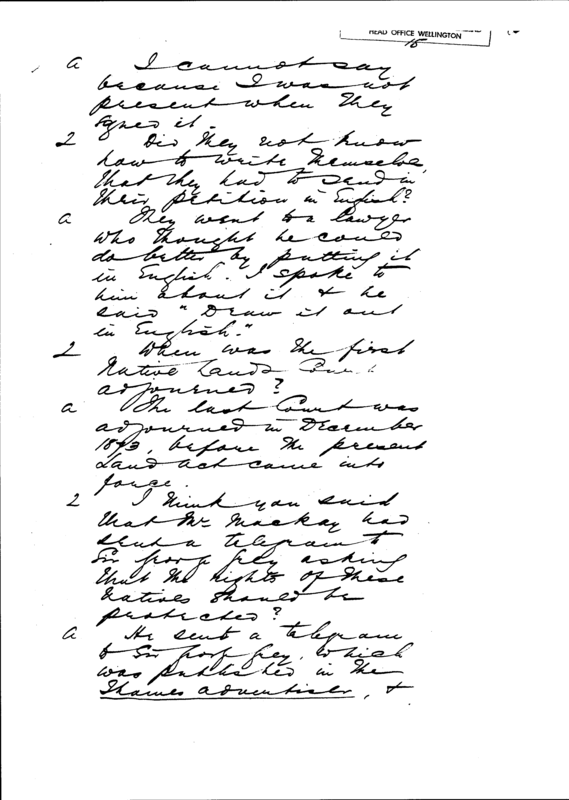 HEAD OFFICE WELLINGTON
15
a I cannot say
because I was not
present when they
signed it.
Q Did they not know
how to write themselves,
that they had to send in
their petition in English?
a They went to a lawyer
who thought he could
do better by putting it
in English. I spoke to
him about it & he
said "Draw it out
in English."
Q When was the first
Native Lands Court
adjourned?
a The last Court was
adjourned in December
1873, before the present
Land Act came into
force.
Q I think you said
that Mr Mackay had
sent a telegram to
Sir George Grey asking
that the rights of these
Natives should be
protected?
a He sent a telegram
to Sir George Grey, which
was published in the
Thames Advertiser, &